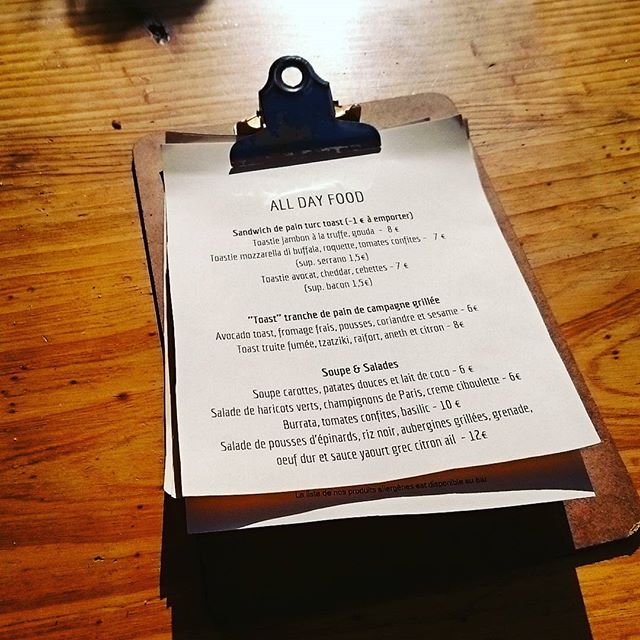 ALL DAY FOOD
Sandwich de pain turc toast (-1 € à emporter)
Toastie jambon à la truffe, gouda - 8 €
Toastie mozzarella di buffala, roquette, tomates confites - 7 €
(sup. serrano 1,5€)
Toastie avocat, cheddar, cebettes - 7 €
(sup. bacon 1,5€)
"Toast" tranche de pain de campagne grillée
Avocado toast, fromage frais, pousses, coriandre et sesame - 6€
Toast truite fumée, tzatziki, raifort, aneth et citron - 8€
Soupe & Salades
Soupe carottes, patates douces et lait de coco - 6 €
Salade de haricots verts, champignons de Paris, creme ciboulette - 6€
Burrata, tomates confites, basilic - 10 €
Salade de pousses d'épinards, riz noir, aubergines grillées, grenade,
oeuf dur et sauce yaourt grec citron ail - 12€
La liste de nos produits allergènes est disponible au bar